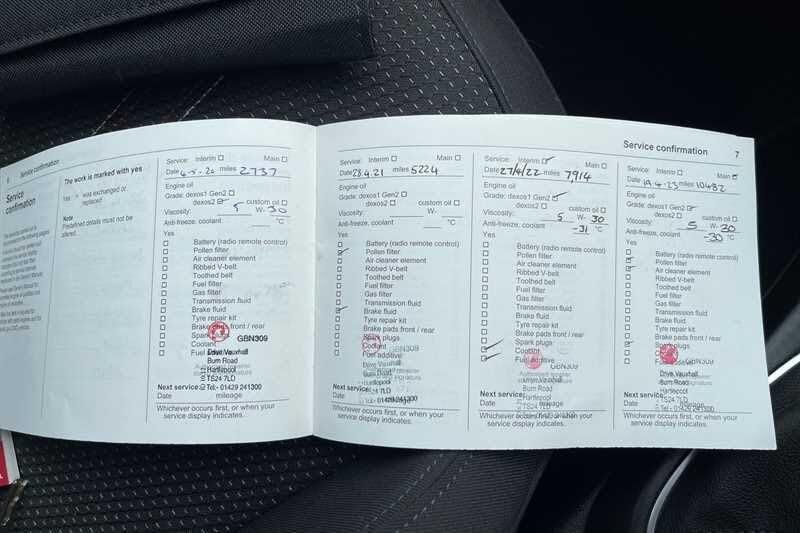 6
Service confirmation
Service
confirmation
The work is marked with yes
Yes = was exchanged or
replaced
Note
Predefined details must not be
altered.
Service: Interim Main
Date 4-5-20 miles 2737
Engine oil
Grade: dexos1 Gen2
dexos2 custom oil
Viscosity: 5 W- 30
Anti-freeze, coolant °C
Yes
Battery (radio remote control)
Pollen filter
Air cleaner element
Ribbed V-belt
Toothed belt
Fuel filter
Gas filter
Transmission fluid
Brake fluid
Tyre repair kit
Brake pads front / rear
Spark plugs
Coolant
GBN309
Drive Vauxhall
Burn Road
Hartlepool
TS24 7LD
Tel:- 01429 241300
Next service:
Date mileage
Whichever occurs first, or when your
service display indicates.
Service: Interim Main
Date 28.4.21 miles 5224
Engine oil
Grade: dexos1 Gen2
dexos2 custom oil
Viscosity: W-
Anti-freeze, coolant °C
Yes
Battery (radio remote control)
Pollen filter
Air cleaner element
Ribbed V-belt
Toothed belt
Fuel filter
Gas filter
Transmission fluid
Brake fluid
Tyre repair kit
Brake pads front / rear
Spark plugs
Coolant
Fuel additive
GBN309
Drive Vauxhall
Burn Road
Hartlepool
TS24 7LD
Tel:- 01429 241300
Next service:
Date mileage
Whichever occurs first, or when your
service display indicates.
Service confirmation
7
Service: Interim Main
Date 27/4/22 miles 7914
Engine oil
Grade: dexos1 Gen2
dexos2 custom oil
Viscosity: 5 W- 30
Anti-freeze, coolant -31 °C
Yes
Battery (radio remote control)
Pollen filter
Air cleaner element
Ribbed V-belt
Toothed belt
Fuel filter
Gas filter
Transmission fluid
Brake fluid
Tyre repair kit
Brake pads front / rear
Spark plugs
Coolant
Fuel additive
GBN309
Drive Vauxhall
Burn Road
Hartlepool
TS24 7LD
Tel:- 01429 241300
Next service:
Date mileage
Whichever occurs first, or when your
service display indicates.
Service: Interim Main
Date 19.4.23 miles 10482
Engine oil
Grade: dexos1 Gen2
dexos2 custom oil
Viscosity: 5 W- 30
Anti-freeze, coolant -30 °C
Yes
Battery (radio remote control)
Pollen filter
Air cleaner element
Ribbed V-belt
Toothed belt
Fuel filter
Gas filter
Transmission fluid
Brake fluid
Tyre repair kit
Brake pads front / rear
Spark plugs
Coolant
GBN309
Drive Vauxhall
Burn Road
Hartlepool
TS24 7LD
Tel:- 01429 241300
Next service:
Date mileage
Whichever occurs first, or when your
service display indicates.